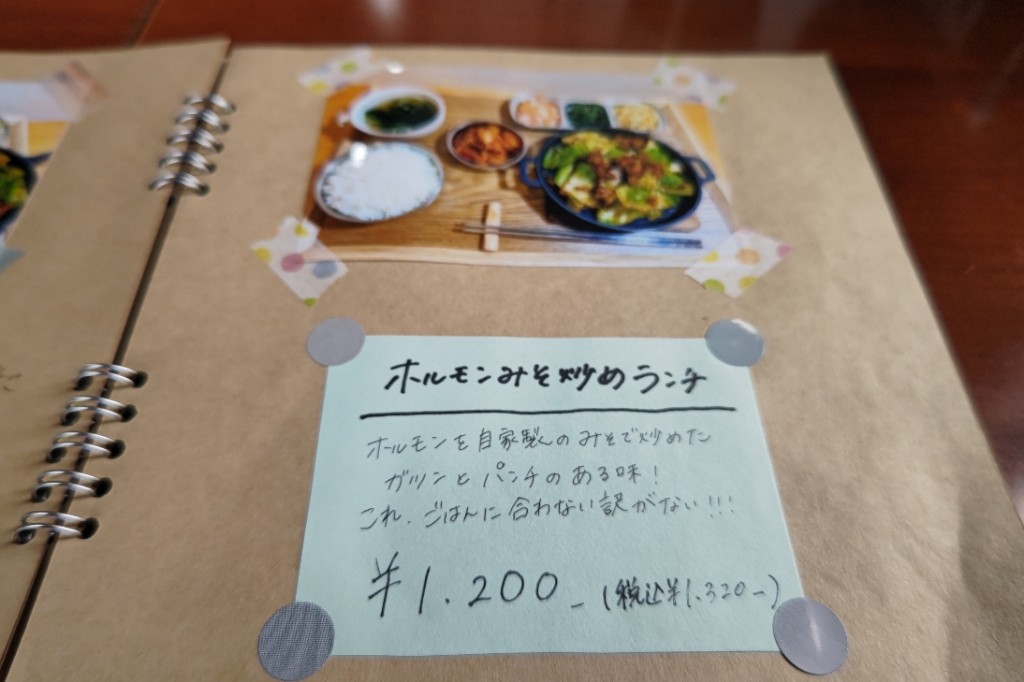 ホルモンみそ炒めランチ
ホルモンを自家製のみそで炒めた
ガツンとパンチのある味！
これ、ごはんに合わない訳がない!!!
¥1.200_ (税込¥1.320-)